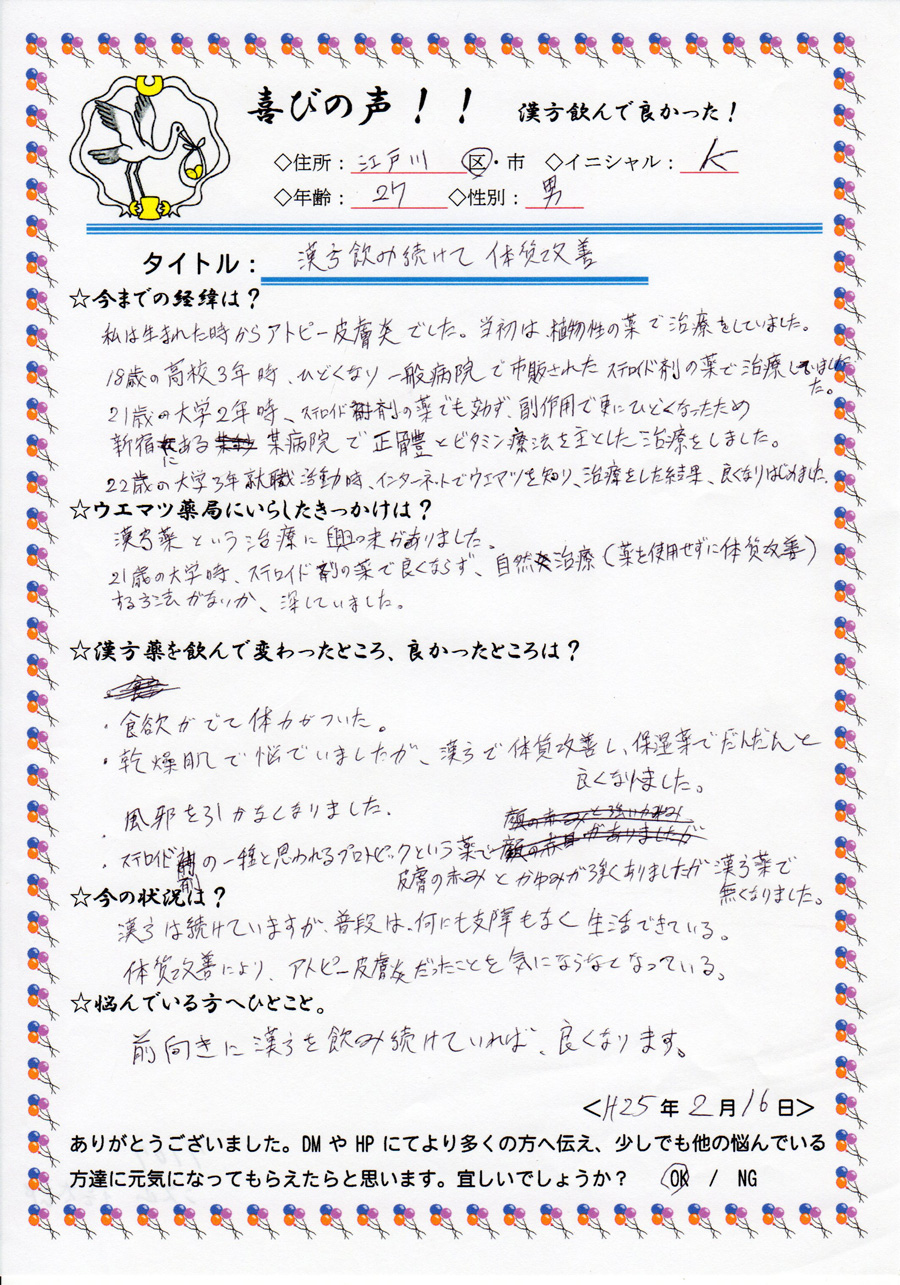 喜びの声！！ 漢方飲んで良かった！
◇住所：江戸川 区・市 ◇イニシャル：K
◇年齢：27 ◇性別：男
タイトル：漢方飲み続けて 体質改善
☆今までの経緯は？
私は生まれた時からアトピー皮膚炎でした。当初は、植物性の薬で治療をしていました。
18歳の高校3年時、ひどくなり一般病院で市販されたステロイド剤の薬で治療していました。
21歳の大学2年時、ステロイド剤の薬でも効ず、副作用で更にひどくなったため
新宿にある薬病院で正骨豊とビタミン療法を主とした治療をしました。
22歳の大学3年就職活動時、インターネットでウエマツを知り、治療をした結果、良くなりはじめました。
☆ウエマツ薬局にいらしたきっかけは？
漢方薬という治療に興味がありました。
21歳の大学時、ステロイド剤の薬で良くならず、自然治療（薬を使用せずに体質改善）
する方法がないか、深していました。
☆漢方薬を飲んで変わったところ、良かったところは？
・食欲がでて体力がついた。
・乾燥肌で悩でいましたが、漢方で体質改善し、保湿薬でだんだんと
良くなりました。
・風邪を引かなくなりました。
・ステロイド剤の一種と思われるプロトピックという薬で
皮膚の赤みとかゆみが強くありましたが漢方薬で
無くなりました。
☆今の状況は？
漢方は続けていますが、普段は、何にも支障もなく生活できている。
体質改善により、アトピー皮膚炎だったことを気にならなくなっている。
☆悩んでいる方へひとこと。
前向きに漢方を飲み続けていれば、良くなります。
＜H25年2月16日＞
ありがとうございました。DM や HP にてより多くの方へ伝え、少しでも他の悩んでいる
方達に元気になってもらえたらと思います。宜しいでしょうか？ OK / NG